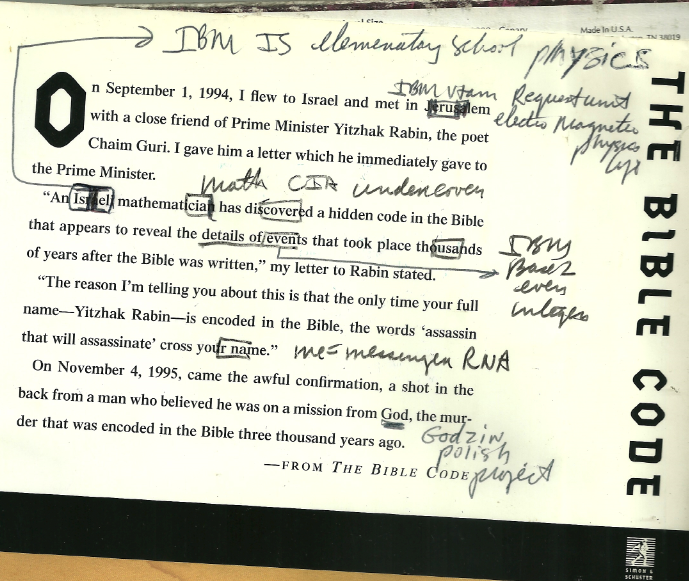 Made in U.S.A.
IBM IS elementary School physics
On September 1, 1994, I flew to Israel and met in Jerusalem
with a close friend of Prime Minister Yitzhak Rabin, the poet
Chaim Guri. I gave him a letter which he immediately gave to
the Prime Minister.
IBM Vtam Request unit
electro Magnetic
physics
life
math CIA undercover
“An Israeli mathematician has discovered a hidden code in the Bible
that appears to reveal the details of events that took place thousands
of years after the Bible was written,” my letter to Rabin stated.
IBM
Base 2
even
integers
“The reason I'm telling you about this is that the only time your full
name—Yitzhak Rabin—is encoded in the Bible, the words ‘assassin
that will assassinate’ cross your name.”
me = messenger RNA
On November 4, 1995, came the awful confirmation, a shot in the
back from a man who believed he was on a mission from God, the mur-
der that was encoded in the Bible three thousand years ago.
Godzin
polish
project
—FROM THE BIBLE CODE
THE BIBLE CODE
SIMON &
SCHUSTER